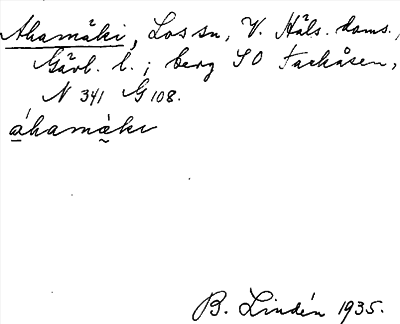 Ahamäki, Los sn, V. Häls. doms.,
Gävl. l.; berg SO Taskåsen,
N 341 G 108.
áhamàki
B. Lindén 1935.